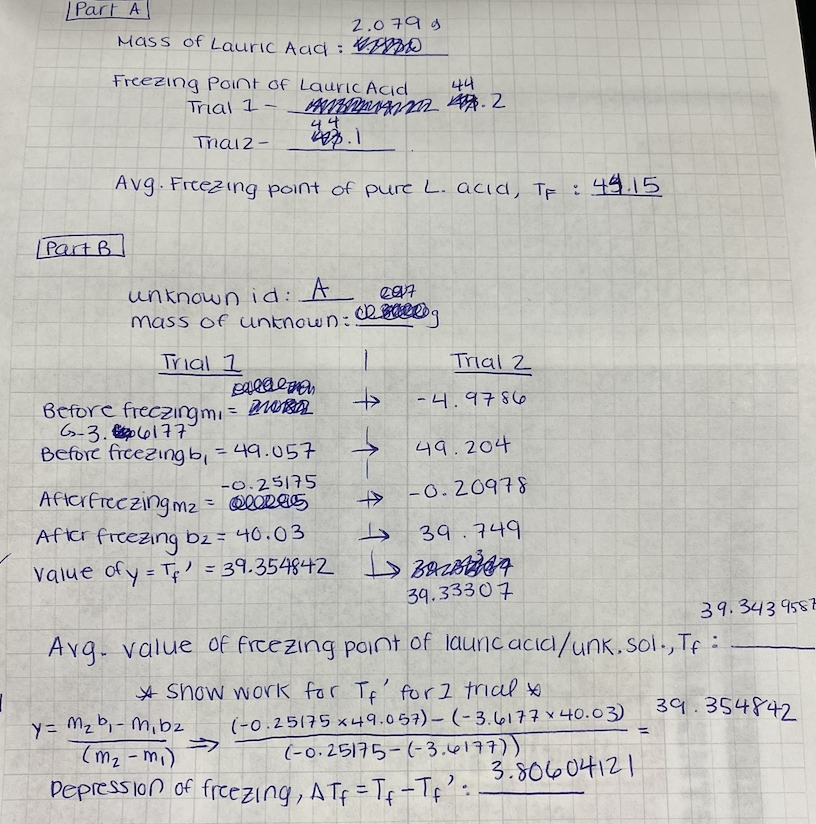 Part A
2.079 g
Mass of Lauric Acid :
Freezing Point of Lauric Acid
Trial 1 - 44.2
Trial 2 - 44.1
Avg. Freezing point of pure L. acid, TF : 44.15
Part B
unknown id: A
mass of unknown: g
Trial 1 | Trial 2
Before freezing m₁ = → -4.9786
↳ -3.6177
Before freezing b₁ = 49.057 → 49.204
-0.25175
After freezing m₂ = → -0.20978
After freezing b₂ = 40.03 ↳ 39.749
value of y = Tf' = 39.354842 ↳
39.33307
39.3439587
Avg. value of freezing point of lauric acid/unk. sol., Tf :
* Show work for Tf' for 1 trial *
y = m₂b₁ - m₁b₂ / (m₂ - m₁) ⇒ (-0.25175 × 49.057) - (-3.6177 × 40.03) / (-0.25175 - (-3.6177)) = 39.354842
3.80604121
Depression of freezing, ΔTf = Tf - Tf' :